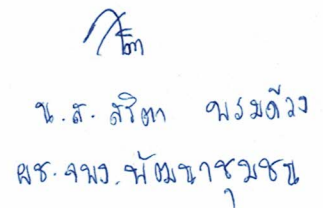 น.ส. สริตา พรมด้วง
ผช. จพง. พัฒนาชุมชน